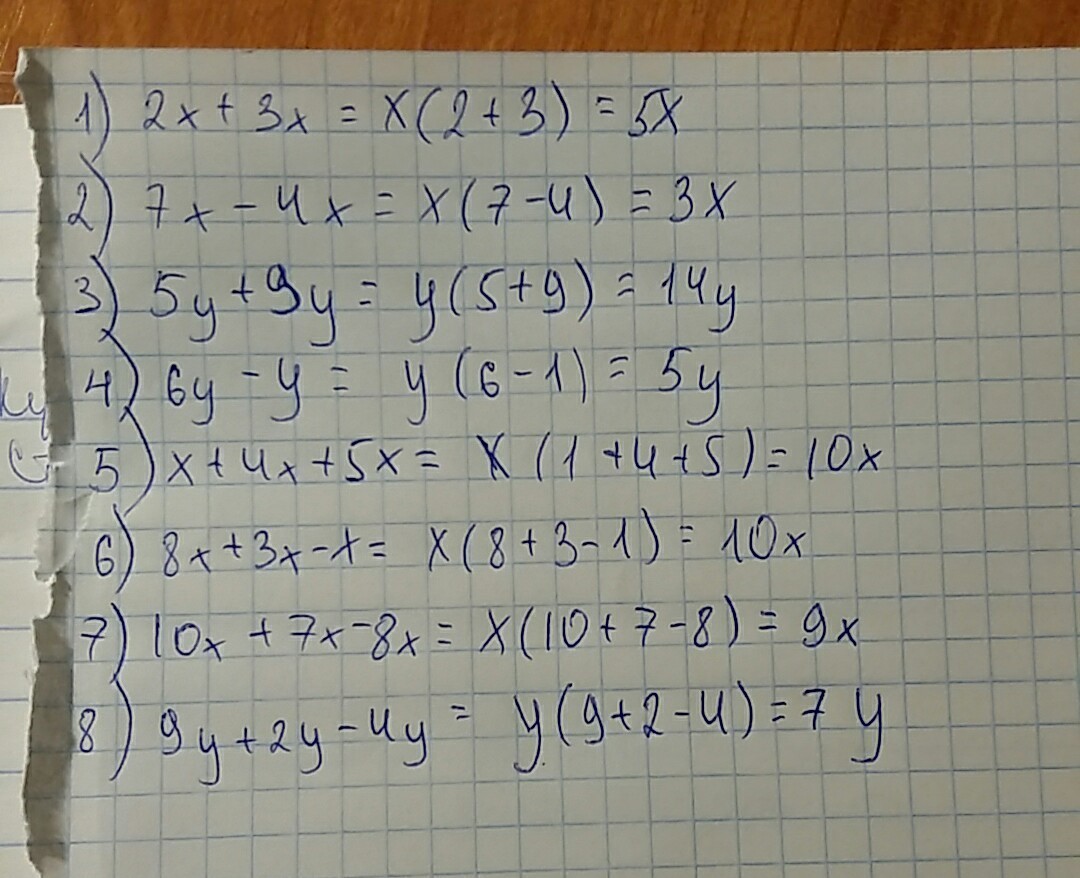 1) 2x + 3x = x(2 + 3) = 5x
2) 7x - 4x = x(7-4) = 3x
3) 5y + 9y = y(5+9) = 14y
4) 6y - y = y(6-1) = 5y
5) x + 4x + 5x = x(1 + 4 + 5) = 10x
6) 8x + 3x - x = x(8 + 3 - 1) = 10x
7) 10x + 7x - 8x = x(10 + 7 - 8) = 9x
8) 9y + 2y - 4y = y(9 + 2 - 4) = 7y